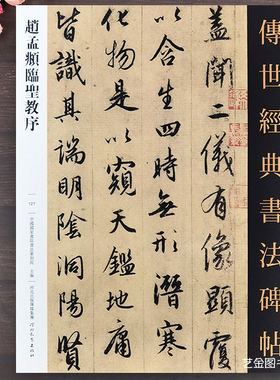 傳世經典書法碑帖
蓋聞二儀有像顯覆
以含生四時無形潛寒
化物是以窺天鑑地庸
皆識其端明陰洞陽賢
趙孟頫臨聖教序
艺金图